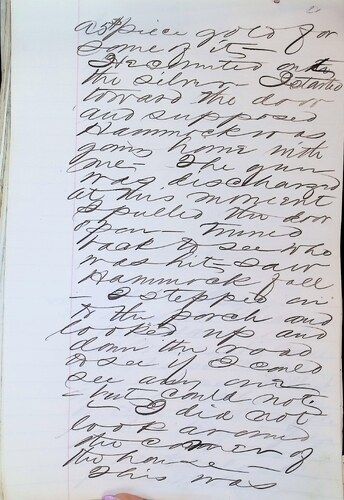 a 5$ piece gold for
some of it -
He counted out
the silver - I started
toward the door
and supposed
Hammock was
going home with
me. The gun
was discharged
at this moment
I pulled the door
open - turned
back to see who
was hit - saw
Hammock fall
- I stepped on
to the porch and
looked up and
down the road
to see if I could
see any one
- but could not
- I did not
look around
the corner of
the house -
This was